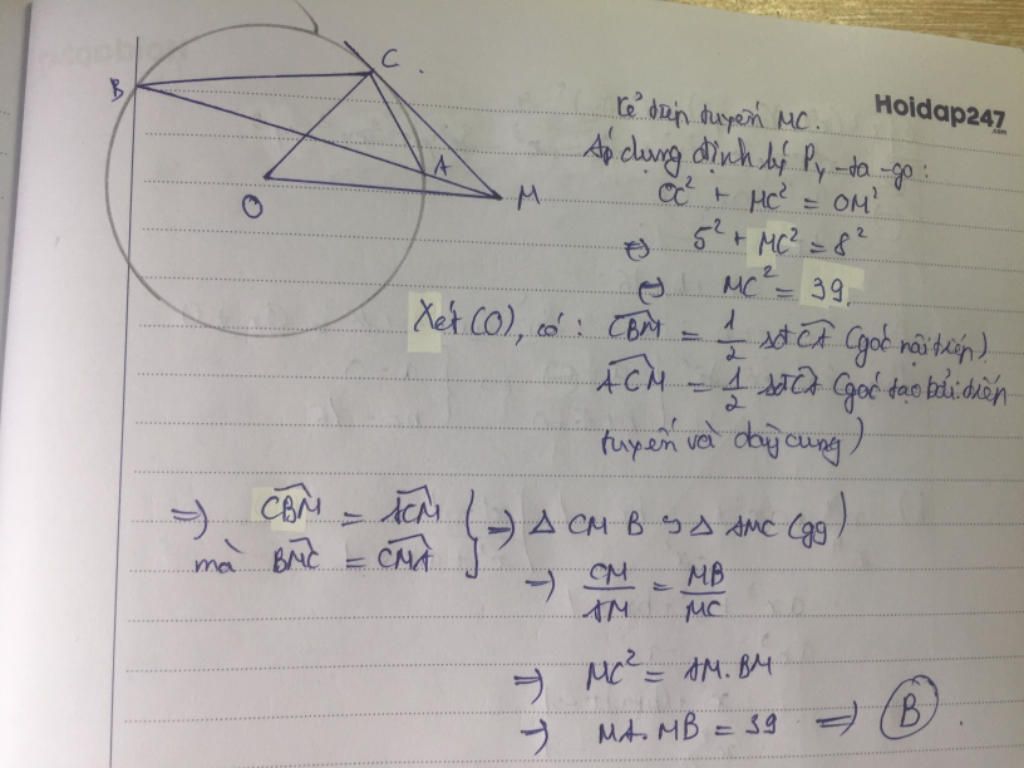 B
C
A
M
O
Hoidap247
.com
Kẻ tiếp tuyến MC.
Áp dụng định lý Py-ta-go:
OC² + MC² = OM²
⇔ 5² + MC² = 8²
⇔ MC² = 39.
Xét (O), có: \widehat{CBM} = \frac{1}{2} sđ \widehat{CA} (góc nội tiếp)
\widehat{ACM} = \frac{1}{2} sđ \widehat{CA} (góc tạo bởi tiếp
tuyến và dây cung)
⇒ \widehat{CBM} = \widehat{ACM} } ⇒ Δ CMB ∽ Δ AMC (gg)
mà \widehat{BMC} = \widehat{CMA}
→ \frac{CM}{AM} = \frac{MB}{MC}
⇒ MC² = AM.BM
→ MA.MB = 39 ⇒ B.